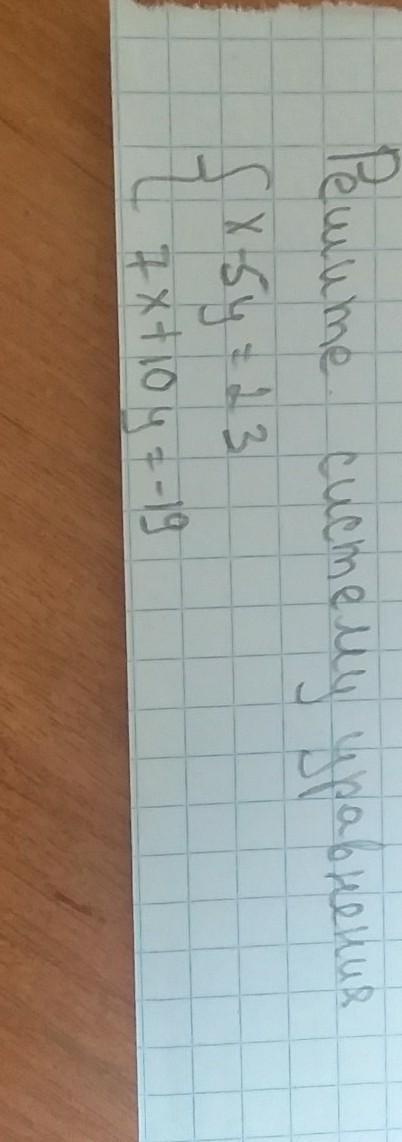 Решите систему уравнения
{ x-5y=23
7x+10y=-19